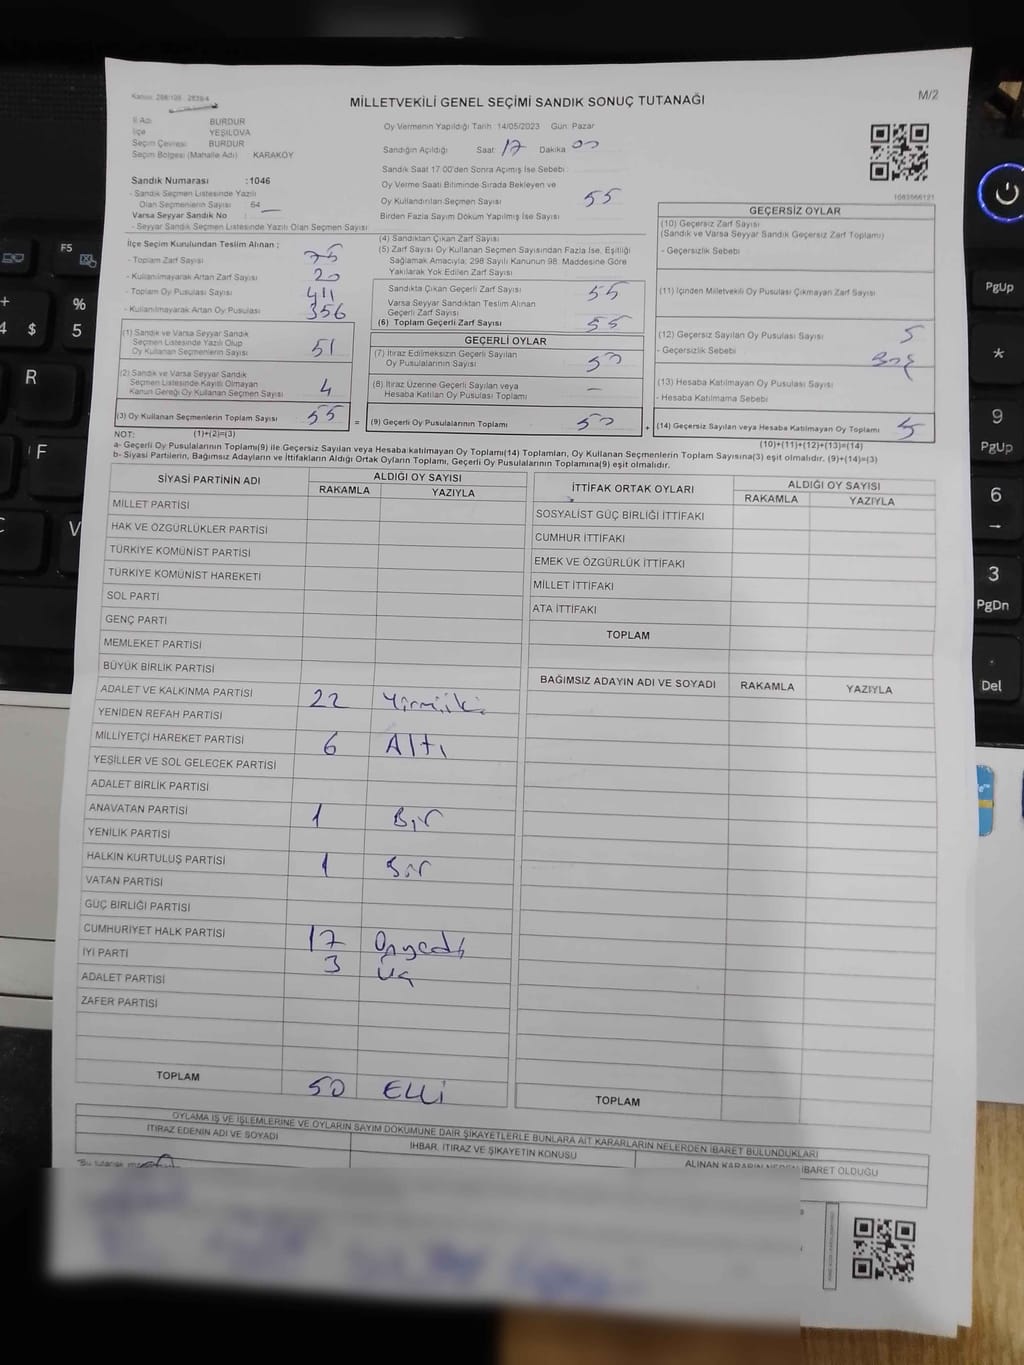 MİLLETVEKİLİ GENEL SEÇİMİ SANDIK SONUÇ TUTANAĞI
M/2
İl Adı BURDUR
İlçe YEŞİLOVA
Seçim Çevresi BURDUR
Seçim Bölgesi (Mahalle Adı) KARAKÖY
Sandık Numarası :1046
- Sandık Seçmen Listesinde Yazılı
Olan Seçmenlerin Sayısı : 54
Varsa Seyyar Sandık No :
- Seyyar Sandık Seçmen Listesinde Yazılı Olan Seçmen Sayısı
Oy Vermenin Yapıldığı Tarih: 14/05/2023 Gün: Pazar
Sandığın Açıldığı Saat 17 Dakika 00
Sandık Saat 17.00'den Sonra Açılmış İse Sebebi :
Oy Verme Saati Bitiminde Sırada Bekleyen ve
Oy Kullandırılan Seçmen Sayısı 55
Birden Fazla Sayım Döküm Yapılmış İse Sayısı
İlçe Seçim Kurulundan Teslim Alınan :
- Toplam Zarf Sayısı 75
- Kullanılmayarak Artan Zarf Sayısı 20
- Toplam Oy Pusulası Sayısı 411
- Kullanılmayarak Artan Oy Pusulası 356
(1) Sandık ve Varsa Seyyar Sandık
Seçmen Listesinde Yazılı Olup
Oy Kullanan Seçmenlerin Sayısı 51
(2) Sandık ve Varsa Seyyar Sandık
Seçmen Listesinde Kayıtlı Olmayan
Kanun Gereği Oy Kullanan Seçmen Sayısı 4
(3) Oy Kullanan Seçmenlerin Toplam Sayısı 55 =
(1)+(2)=(3)
(4) Sandıktan Çıkan Zarf Sayısı
(5) Zarf Sayısı Oy Kullanan Seçmen Sayısından Fazla İse, Eşitliği
Sağlamak Amacıyla, 298 Sayılı Kanunun 98. Maddesine Göre
Yakılarak Yok Edilen Zarf Sayısı
Sandıkta Çıkan Geçerli Zarf Sayısı 55
Varsa Seyyar Sandıktan Teslim Alınan
Geçerli Zarf Sayısı
(6) Toplam Geçerli Zarf Sayısı 55
GEÇERLİ OYLAR
(7) İtiraz Edilmeksizin Geçerli Sayılan
Oy Pusulalarının Sayısı 50
(8) İtiraz Üzerine Geçerli Sayılan veya
Hesaba Katılan Oy Pusulası Toplamı —
(9) Geçerli Oy Pusulalarının Toplamı 50 +
1083566121
GEÇERSİZ OYLAR
(10) Geçersiz Zarf Sayısı
(Sandık ve Varsa Seyyar Sandık Geçersiz Zarf Toplamı)
- Geçersizlik Sebebi
(11) İçinden Milletvekili Oy Pusulası Çıkmayan Zarf Sayısı
(12) Geçersiz Sayılan Oy Pusulası Sayısı 5
- Geçersizlik Sebebi
(13) Hesaba Katılmayan Oy Pusulası Sayısı
- Hesaba Katılmama Sebebi
(14) Geçersiz Sayılan veya Hesaba Katılmayan Oy Toplamı 5
(10)+(11)+(12)+(13)=(14)
NOT:
a- Geçerli Oy Pusulaları Toplamı(9) ile Geçersiz Sayılan veya Hesaba katılmayan Oy Toplamı(14) Toplamları, Oy Kullanan Seçmenlerin Toplam Sayısına(3) eşit olmalıdır. (9)+(14)=(3)
b- Siyasi Partilerin, Bağımsız Adayların ve İttifakların Aldığı Oyların Toplamı, Geçerli Oy Pusulalarının Toplamına(9) eşit olmalıdır.
SİYASİ PARTİNİN ADI ALDIĞI OY SAYISI
RAKAMLA YAZIYLA
MİLLET PARTİSİ
HAK VE ÖZGÜRLÜKLER PARTİSİ
TÜRKİYE KOMÜNİST PARTİSİ
TÜRKİYE KOMÜNİST HAREKETİ
SOL PARTİ
GENÇ PARTİ
MEMLEKET PARTİSİ
BÜYÜK BİRLİK PARTİSİ
ADALET VE KALKINMA PARTİSİ 22 Yirmiiki
YENİDEN REFAH PARTİSİ
MİLLİYETÇİ HAREKET PARTİSİ 6 Altı
YEŞİLLER VE SOL GELECEK PARTİSİ
ADALET BİRLİK PARTİSİ
ANAVATAN PARTİSİ 1 Bir
YENİLİK PARTİSİ
HALKIN KURTULUŞ PARTİSİ 1 Bir
VATAN PARTİSİ
GÜÇ BİRLİĞİ PARTİSİ
CUMHURİYET HALK PARTİSİ 17 Onyedi
İYİ PARTİ 3 Üç
ADALET PARTİSİ
ZAFER PARTİSİ
TOPLAM 50 Elli
İTTİFAK ORTAK OYLARI ALDIĞI OY SAYISI
RAKAMLA YAZIYLA
SOSYALİST GÜÇ BİRLİĞİ İTTİFAKI
CUMHUR İTTİFAKI
EMEK VE ÖZGÜRLÜK İTTİFAKI
MİLLET İTTİFAKI
ATA İTTİFAKI
TOPLAM
BAĞIMSIZ ADAYIN ADI VE SOYADI RAKAMLA YAZIYLA
TOPLAM
OYLAMA İŞ VE İŞLEMLERİNE VE OYLARIN SAYIM DÖKÜMÜNE DAİR ŞİKAYETLERLE BUNLARA AİT KARARLARIN NELERDEN İBARET BULUNDUKLARI
İTİRAZ EDENİN ADI VE SOYADI
İHBAR, İTİRAZ VE ŞİKAYETİN KONUSU
ALINAN KARARIN NEDEN İBARET OLDUĞU
"Bu tutanak
F5
%
5
4 $
R
F
V
PgUp
*
9
PgUp
6
→
3
PgDn
.
Del